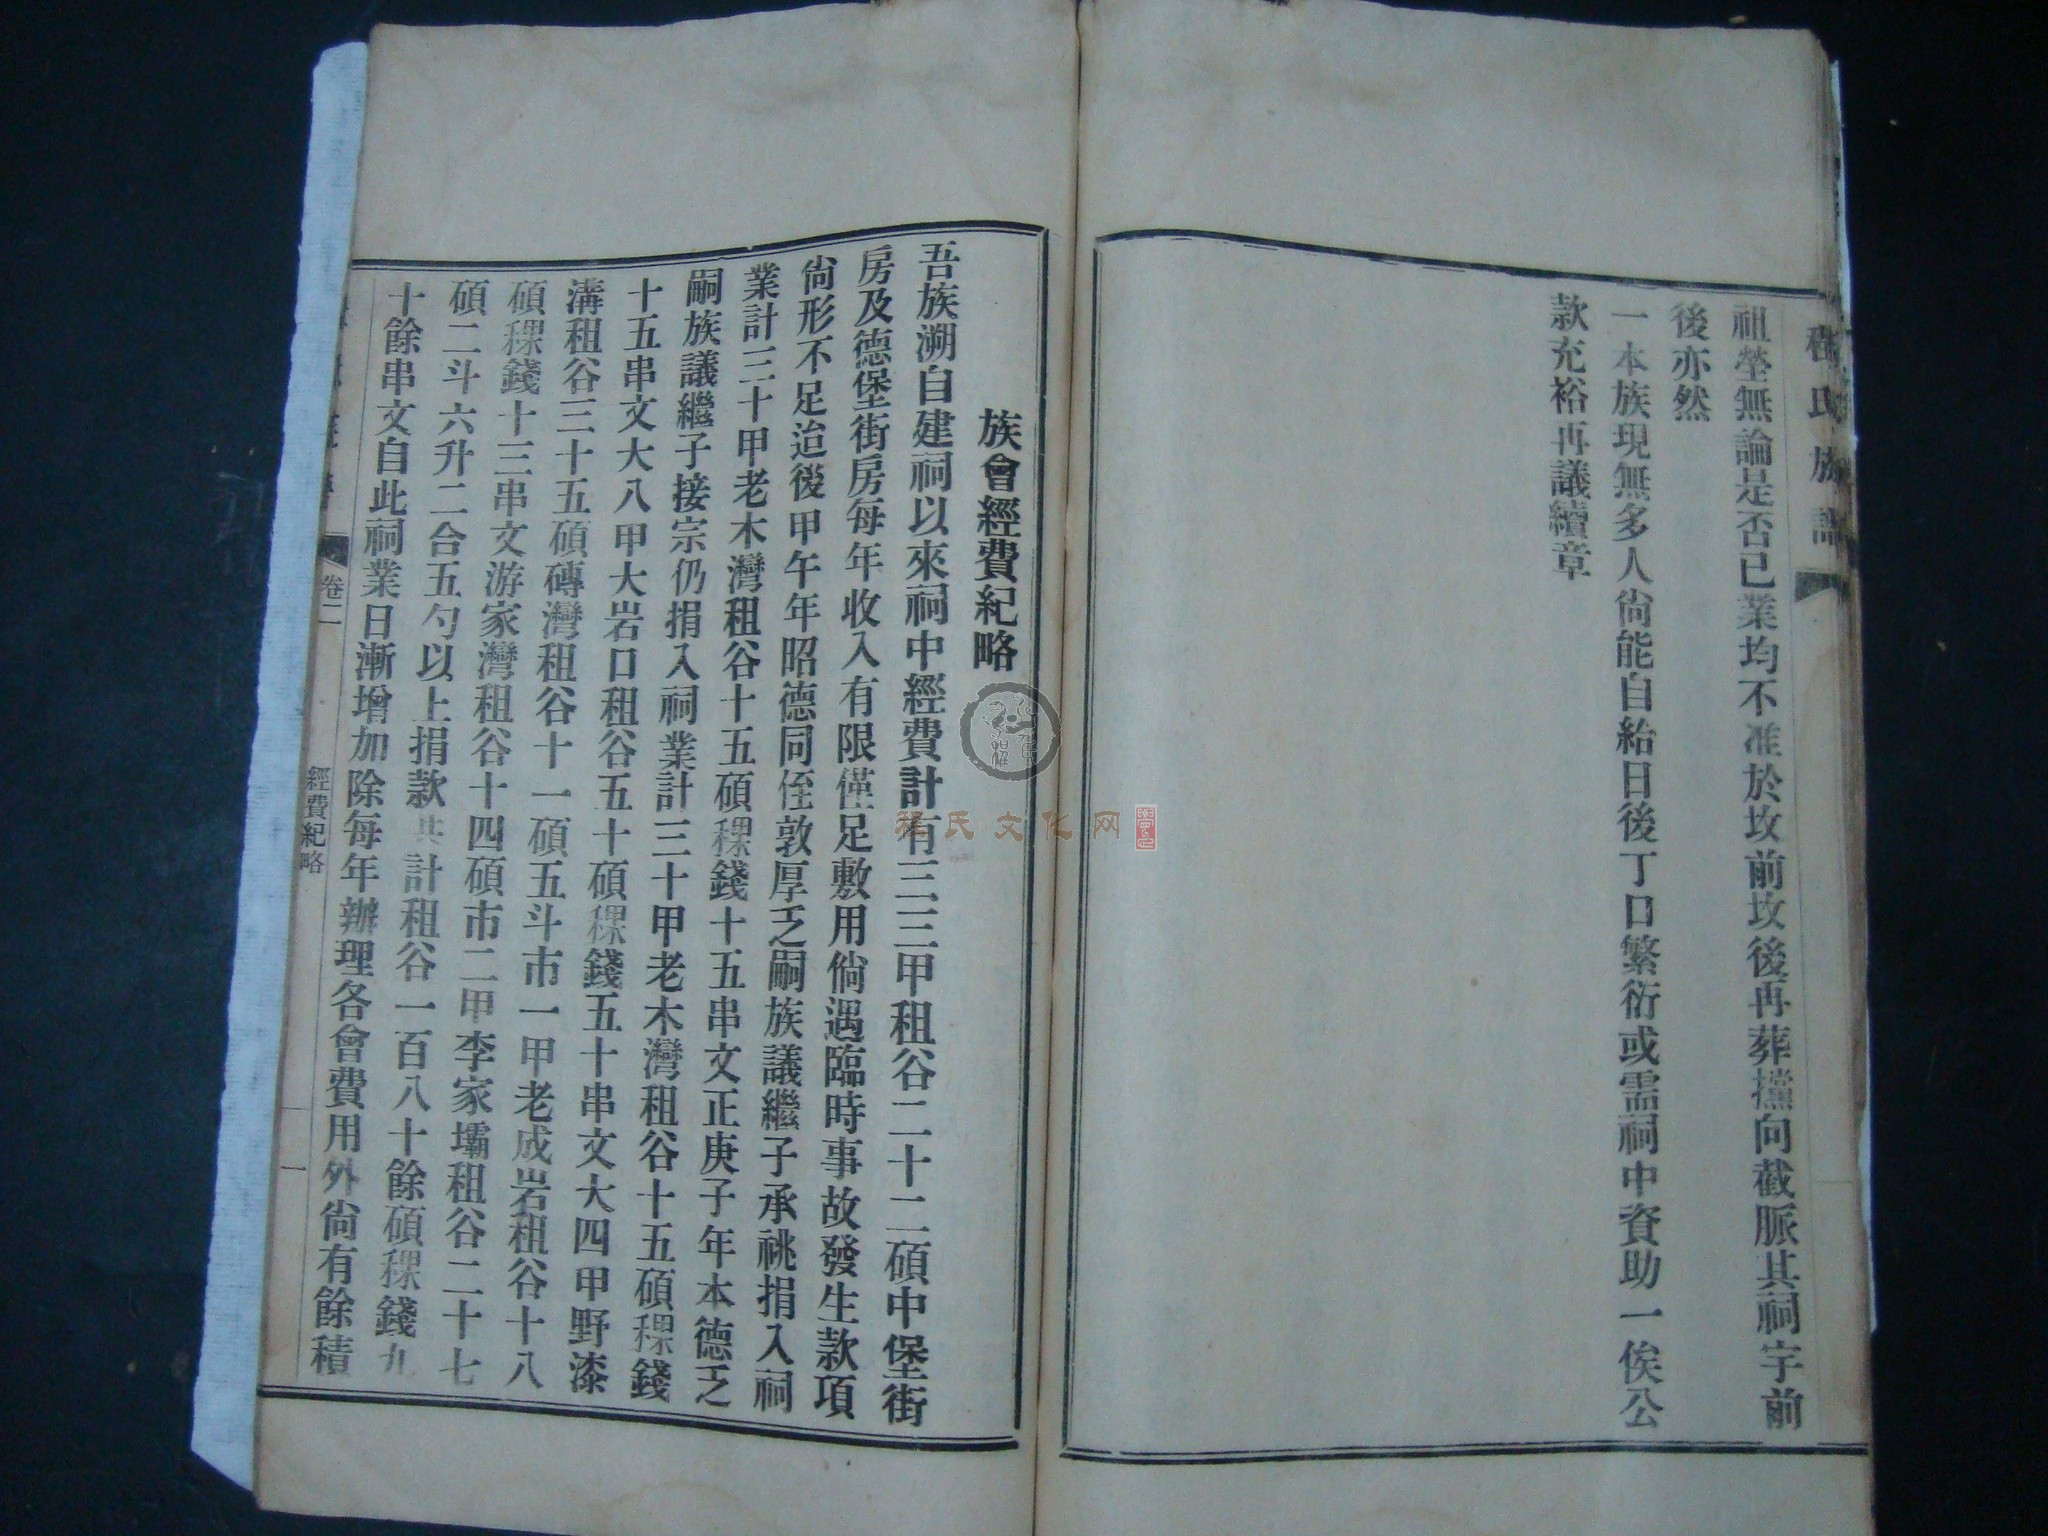 氏族譜
祖塋無論是否已業均不准於坟前坟後再葬攩向截脈其祠宇前
後亦然
一本族現無多人尙能自給日後丁口繁衍或需祠中資助一俟公
款充裕再議續章
族會經費紀略
吾族溯自建祠以來祠中經費計有三三甲租谷二十二碩中堡街
房及德堡街房每年收入有限僅足敷用倘遇臨時事故發生款項
尙形不足迨後甲午年昭德同侄敦厚乏嗣族議繼子承祧捐入祠
業計三十甲老木灣租谷十五碩稞錢十五串文正庚子年本德乏
嗣族議繼子接宗仍捐入祠業計三十甲老木灣租谷十五碩稞錢
十五串文大八甲大岩口租谷五十碩稞錢五十串文大四甲野漆
溝租谷三十五碩磚灣租谷十一碩五斗市一甲老成岩租谷十八
碩稞錢十三串文游家灣租谷十四碩市二甲李家壩租谷二十七
碩二斗六升二合五勺以上捐款共計租谷一百八十餘碩稞錢九
十餘串文自此祠業日漸增加除每年辦理各會費用外尙有餘積
卷二
經費紀略
一
程氏文化网